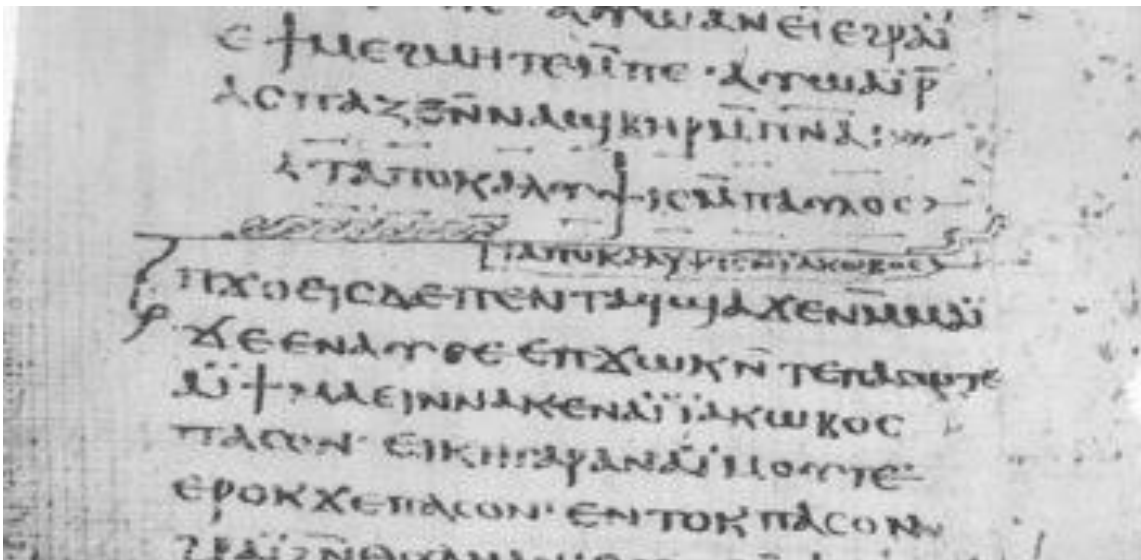 ⲡⲉ · ⲁⲩⲱⲁⲛⲉⲓⲉϩⲣⲁⲓ̈
ⲉϯⲙⲉϩⲙⲏⲧⲉⲙ̄ⲡⲉ · ⲁⲩⲱⲁⲓⲣ̄
ⲁⲥⲡⲁⲍⲉⲛ̄ⲛⲁϣⲃⲏⲣⲙ̄ⲡ̄ⲛ̄ⲁ̄ :
ⲧⲁⲡⲟⲕⲁⲗⲩⲯⲓⲥⲙ̄ⲡⲁⲩⲗⲟⲥ
ⲧⲁⲡⲟⲕⲁⲗⲩⲯⲓⲥⲛ̄ⲓ̈ⲁⲕⲱⲃⲟⲥ
ⲡϫⲟⲉⲓⲥⲇⲉⲡⲉⲛⲧⲁϥϣⲁϫⲉⲛⲙ̄ⲙⲁⲓ̈
ϫⲉⲉⲛⲁⲩϭⲉⲉⲡϫⲱⲕⲛ̄ⲧⲉⲡⲁⲥⲱⲧⲉ
ⲁⲓ̈ϯⲙⲁⲉⲓⲛⲛⲁⲕⲉⲛⲁⲓ̈ⲓ̈ⲁⲕⲱⲃⲟⲥ
ⲡⲁⲥⲟⲛ · ⲉⲓⲕⲏⲅⲁⲣⲁⲛⲁⲓ̈ⲙⲟⲩⲧⲉ
ⲉⲣⲟⲕϫⲉⲡⲁⲥⲟⲛ · ⲉⲛⲧⲟⲕⲡⲁⲥⲟⲛ